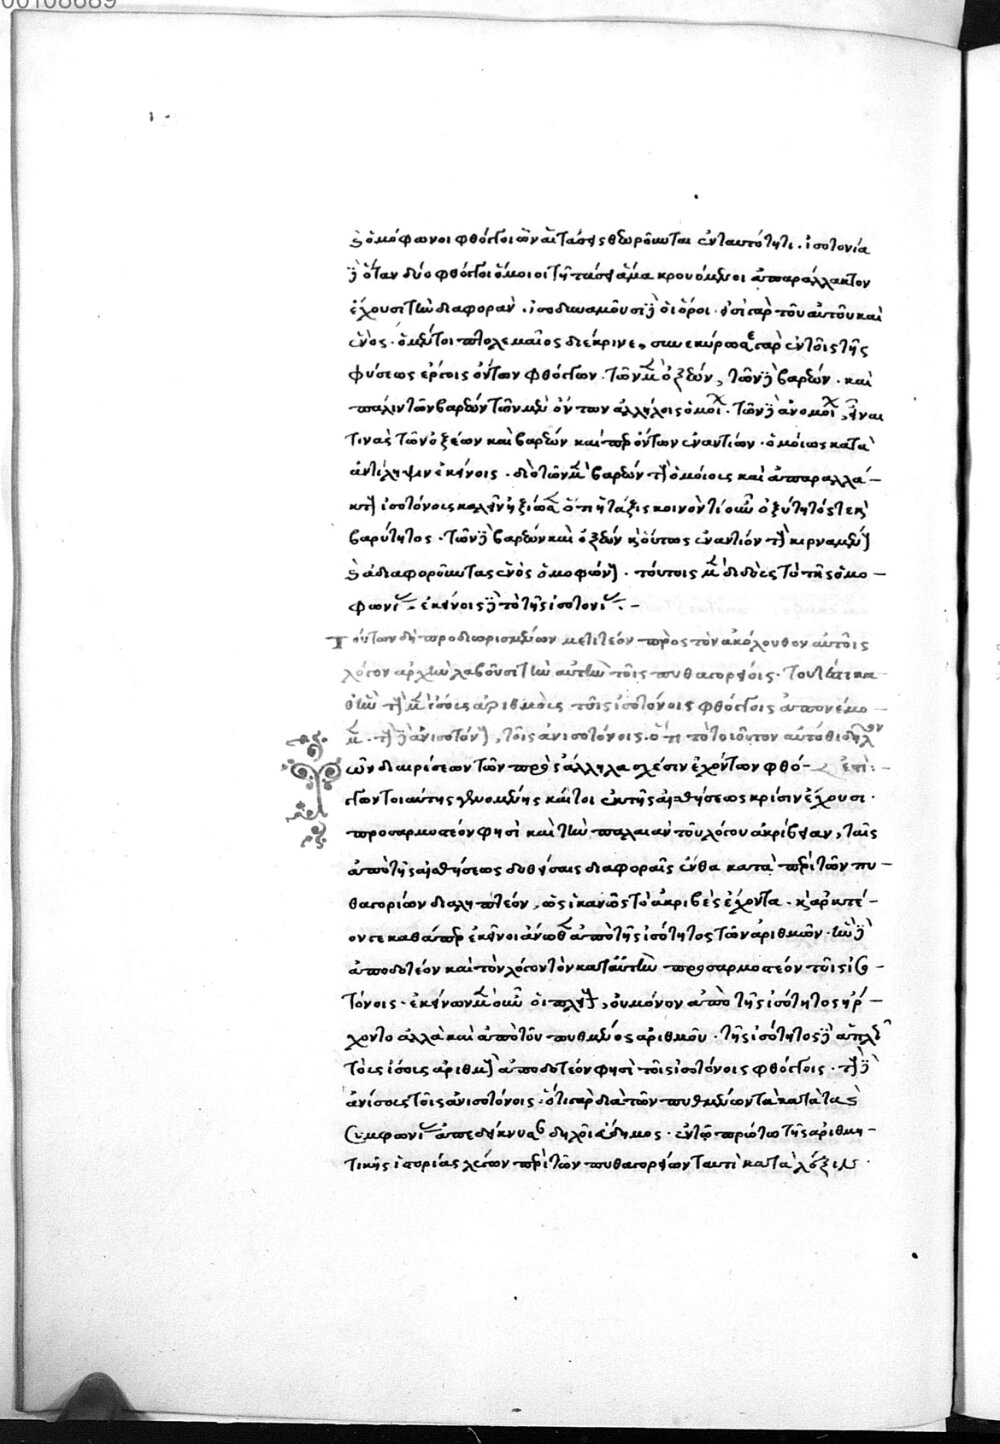 00108689
ὁμόφωνοι φθόγγοι ὧν αἱ τάσεις θεωροῦνται ἐν ταυτότητι. ἰσοτονία
δὲ ὅταν δύο φθόγγοι ὅμοιοι τῇ τάσει ἅμα κρουόμενοι ἀπαράλλακτον
ἔχουσι τὴν διαφοράν. ἰσοδυναμοῦσι δὲ οἱ ὅροι. εἰσὶ γὰρ τοῦ αὐτοῦ καὶ
ἑνός. ὁ μέντοι πτολεμαῖος διέκρινε, γὰρ ἐν τοῖς τῆς
φύσεως ἔργοις ὄντων φθόγγων. τῶν μὲν ὀξέων, τῶν δὲ βαρέων. καὶ
πάλιν τῶν βαρέων τῶν μὲν ὄντων ἀλλήλοις ὁμοί. τῶν δὲ ἀνομοί, εἶναι
τινὰς τῶν ὀξέων καὶ βαρέων καίπερ ὄντων ἐναντίων. ὁμοίως κατὰ
ἀντίληψιν ἐκείνοις. διὸ τῶν μὲν βαρέων τοῖς ὁμοίοις καὶ ἀπαραλλά-
κτοις ἰσοτόνοις καλεῖν ἠξίωσεν ὅτι ἡ τάξις κοινόν τί οὖν ὀξύτητός τε καὶ
βαρύτητος. τῶν δὲ βαρέων καὶ ὀξέων καὶ οὕτως ἐναντίον τοῖς κιρναμένοις
ἀδιαφοροῦντας ἑνὸς ὁμοφώνοις. τούτοις μὲν διδοὺς τὸ τῆς ὁμο-
φωνίας. ἐκείνοις δὲ τὸ τῆς ἰσοτονίας.
Τούτων δὴ προδιωρισμένων μετιτέον πρὸς τὸν ἀκόλουθον αὐτοῖς
λόγον ἀρχὴν λαβοῦσι τὴν αὐτὴν τοῖς πυθαγορείοις. τουτέστι κα-
θ' ἣν τοὺς μὲν ἴσους ἀριθμοὺς τοῖς ἰσοτόνοις φθόγγοις ἀπονέμο-
μεν. τοὺς δὲ ἀνίσους, τοῖς ἀνισοτόνοις. ὅτι τὸ τοιοῦτον αὐτόθι δῆλον
Τῶν διαιρέσεων τῶν πρὸς ἄλληλα σχέσιν ἐχόντων φθό- ἐπὶ:-
γγων τοιαύτης γενομένης καίτοι ἐκ τῆς αἰσθήσεως κρίσιν ἔχουσι.
προσαρμοστέον φησὶ καὶ τὴν παλαιὰν τοῦ λόγου ἀκρίβειαν, ταῖς
ἀπὸ τῆς αἰσθήσεως δοθείσαις διαφοραῖς ἔνθα κατὰ περὶ τῶν πυ-
θαγορίων διαληπτέον, ὡς ἱκανῶς τὸ ἀκριβὲς ἔχοντα. καὶ ἀρκτέ-
ον γε καθάπερ ἐκεῖνοι ἄνωθεν ἀπὸ τῆς ἰσότητος τῶν ἀριθμῶν. ἣν δὲ
ἀποδοτέον καὶ τὸν λόγον τὸν κατ' αὐτὴν προσαρμοστέον τοῖς ἰσο-
τόνοις. ἐκείνων μὲν οὖν οἱ πλείους, οὐ μόνον ἀπὸ τῆς ἰσότητος ἤρ-
χοντο ἀλλὰ καὶ ἀπὸ τοῦ πυθμένος ἀριθμοῦ. τῆς ἰσότητος δὲ ἁπλῶς
τοὺς ἴσους ἀριθμοὺς ἀποδοτέον φησὶ τοῖς ἰσοτόνοις φθόγγοις. τοὺς δὲ
ἀνίσους τοῖς ἀνισοτόνοις. ὅτι γὰρ διὰ τῶν πυθμένων τὰ κατὰ τὰς
συμφωνίας ἀπεδείκνυσαν δηλοῖ εὔδημος. ἐν τῷ πρώτῳ τῆς ἀριθμη-
τικῆς ἱστορίας λέγων περὶ τῶν πυθαγορείων ταυτὶ κατὰ λέξιν.